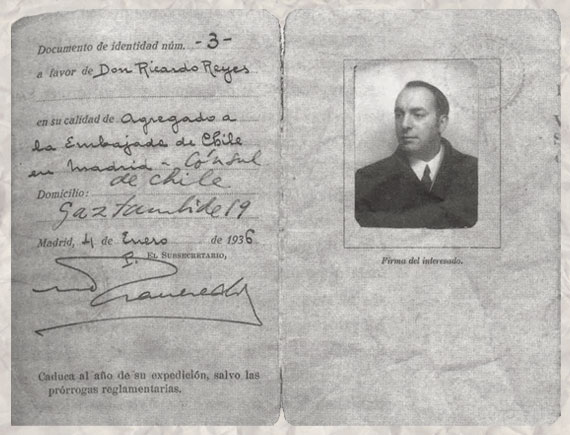 Documento de identidad núm. -3-
a favor de Don Ricardo Reyes
en su calidad de Agregado a
la Embajada de Chile
en Madrid - Cónsul
de Chile
Domicilio:
Gaztambide 19
Madrid, 4 de Enero de 1936
P. EL SUBSECRETARIO,
Caduca al año de su expedición, salvo las
prórrogas reglamentarias.
Firma del interesado.